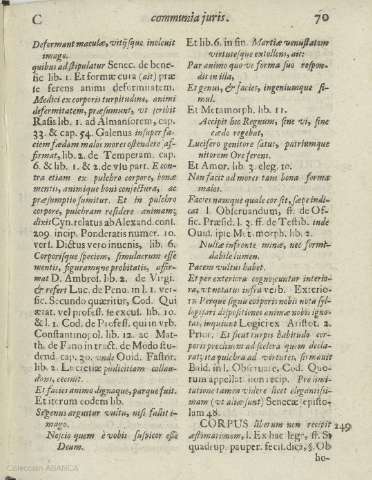 C communia juris. 70
Deformant maculæ, vitijsque inolevit
imago.
quibus adstipulatur Senec. de bene-
fic lib. 1. Et formæ cura (ait) præ
se ferens animi deformitatem.
Medici ex corporis turpitudine, animi
deformitatem, præsumunt, vt scribit
Rasis lib. 1. ad Almansorem, cap.
33. & cap. 54. Galenus insuper fa-
ciem fædam malos mores ostendere af-
firmat, lib. 2. de Temperam. cap.
6. & lib. 1. & 2. de vsu part. E con-
tra etiam ex pulchro corpore, bonæ
mentis, animique boni conjectura, ac
præsumptio sumitur. Et in pulchro
corpore, pulchram residere animam;
dixit Cyn. relatus ab Alexand. cons.
209. incip. Ponderatis numer. 10.
vers. Dictus vero inuenis, lib. 6.
Corporisque speciem, simulacrum esse
mentis, figuramque probitatis, affir-
mat D. Ambros. lib. 2. de Virgi.
& refert Luc. de Pena. in l. 1. ver-
sic. Secundo quæritur, Cod. Qui
ætat. vel profess. se excus. lib. 10.
& l. 1. Cod. de Profess. qui in vrb.
Constantinopol. lib. 12. ac Mat-
th. de Fano in tract. de Modo stu-
dend. cap. 20. unde Ouid. Fastor.
lib. 2. Lucretiæ pudicitiam collau-
dans, cecinit.
Et facies animo dignaque, parque fuit.
Et iterum eodem lib.
Segenus arguitur vultu, nisi fallit i-
mago.
Nescio quem è vobis suspicor esse
Deum.
Et lib. 6. in fin. Martiæ venustatem
virtutesque extollens, ait:
Par animo quoque forma suo respon-
dit in illa,
Et genus, & facies, ingeniumque si-
mul.
Et Metamorph. lib. 11.
Accipit hoc Regnum, sine vi, sine
cæde regebat,
Lucifero genitore satus, patriumque
nitorem Ore ferens.
Et Amor. lib. 3. eleg. 10.
Non facit ad mores tam bona forma
malos.
Facies namque quale cor sit, sæpe indi-
cat l. Obseruandum, ff. de Of-
fic. Præsid. l. 3. ff. de Testib. inde
Ouid. ipse Metamorph. lib. 2.
Nullæ in fronte minæ, nec formi-
dabile lumen.
Pacem vultus habet.
Et per exteriora cognoscuntur interio-
ra, vt notatur infra verb. Exterio-
ra Per que signa corporis nobis nota syl-
logisari dispositiones animæ nobis igno-
tas, inquiunt Logici ex Aristot. 2.
Prior. Et sicut turpis habitudo cor-
poris proclivem ad scelera quem decla-
rat; ita pulchra ad virtutes, firmauit
Bald. in l. Obseruare. Cod. Quo-
rum appellat. non recip. Præ imi-
tatione tamen videre licet elegantissi-
mam (vt aliæ sunt) Senecæ epistolam 48.
CORPUS liberum non recipit 249
æstimationem, l. Ex hac lege, ff. Si
quadrup. pauper. fecit. dica, §. Ob
ho-
Colección ABANCA